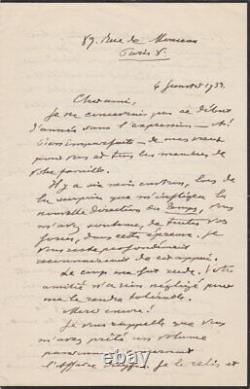 89. Rue de Monceau
Paris 8.
4 Janvier 1932
Cher ami,
Je ne concevrais pas ce début
d'année sans l'expression — 
bien imparfaite — de mes vœux
pour vous et tous les membres de
votre famille.
Il y a six mois environ, lors de
la surprise que m'infligea la
nouvelle direction du Temps, vous
m'avez soutenu, de toutes vos
forces, dans cette épreuve. Je
vous reste profondément
reconnaissant de cet appui.
Le coup me fut rude. Votre
amitié n'a rien négligé pour
me le rendre tolérable.
Merci encore!
Je vous rappelle que vous
m'avez prêté un volume
concernant
l'Affaire Dreyfus. Je le relis et
© éBay